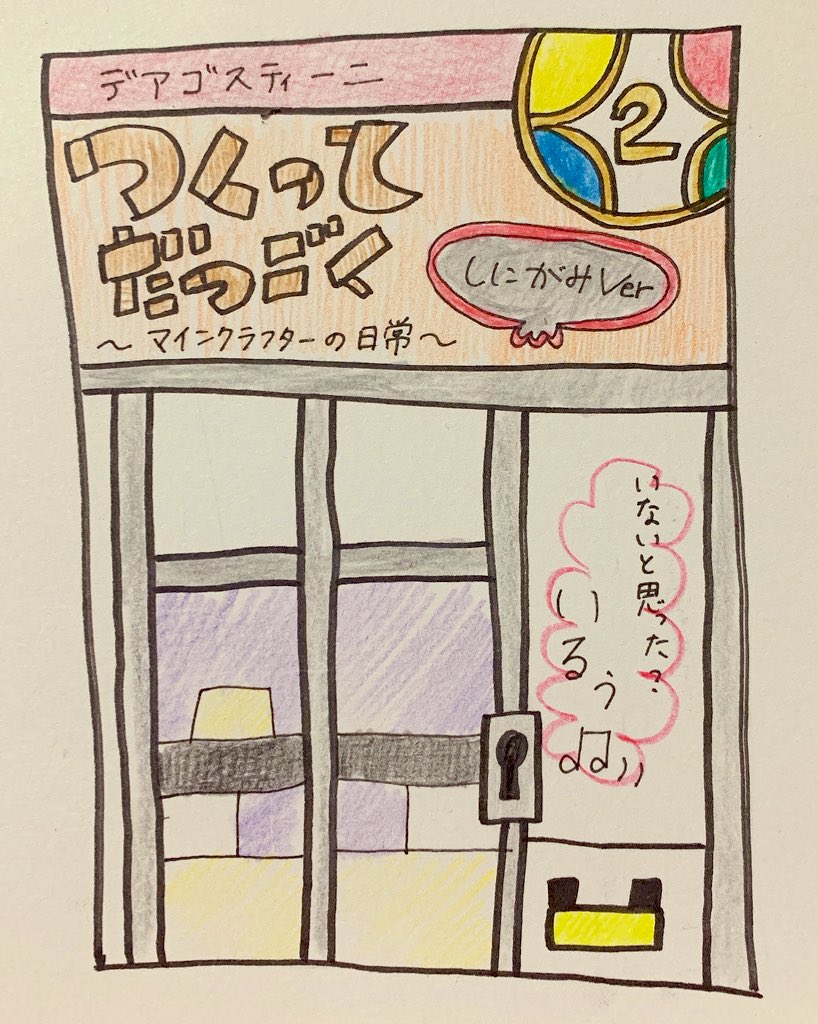 デアゴスティーニ
2
つくって
だつごく
しにがみVer
～マインクラフターの日常～
いないと思った?
いるぅ♫